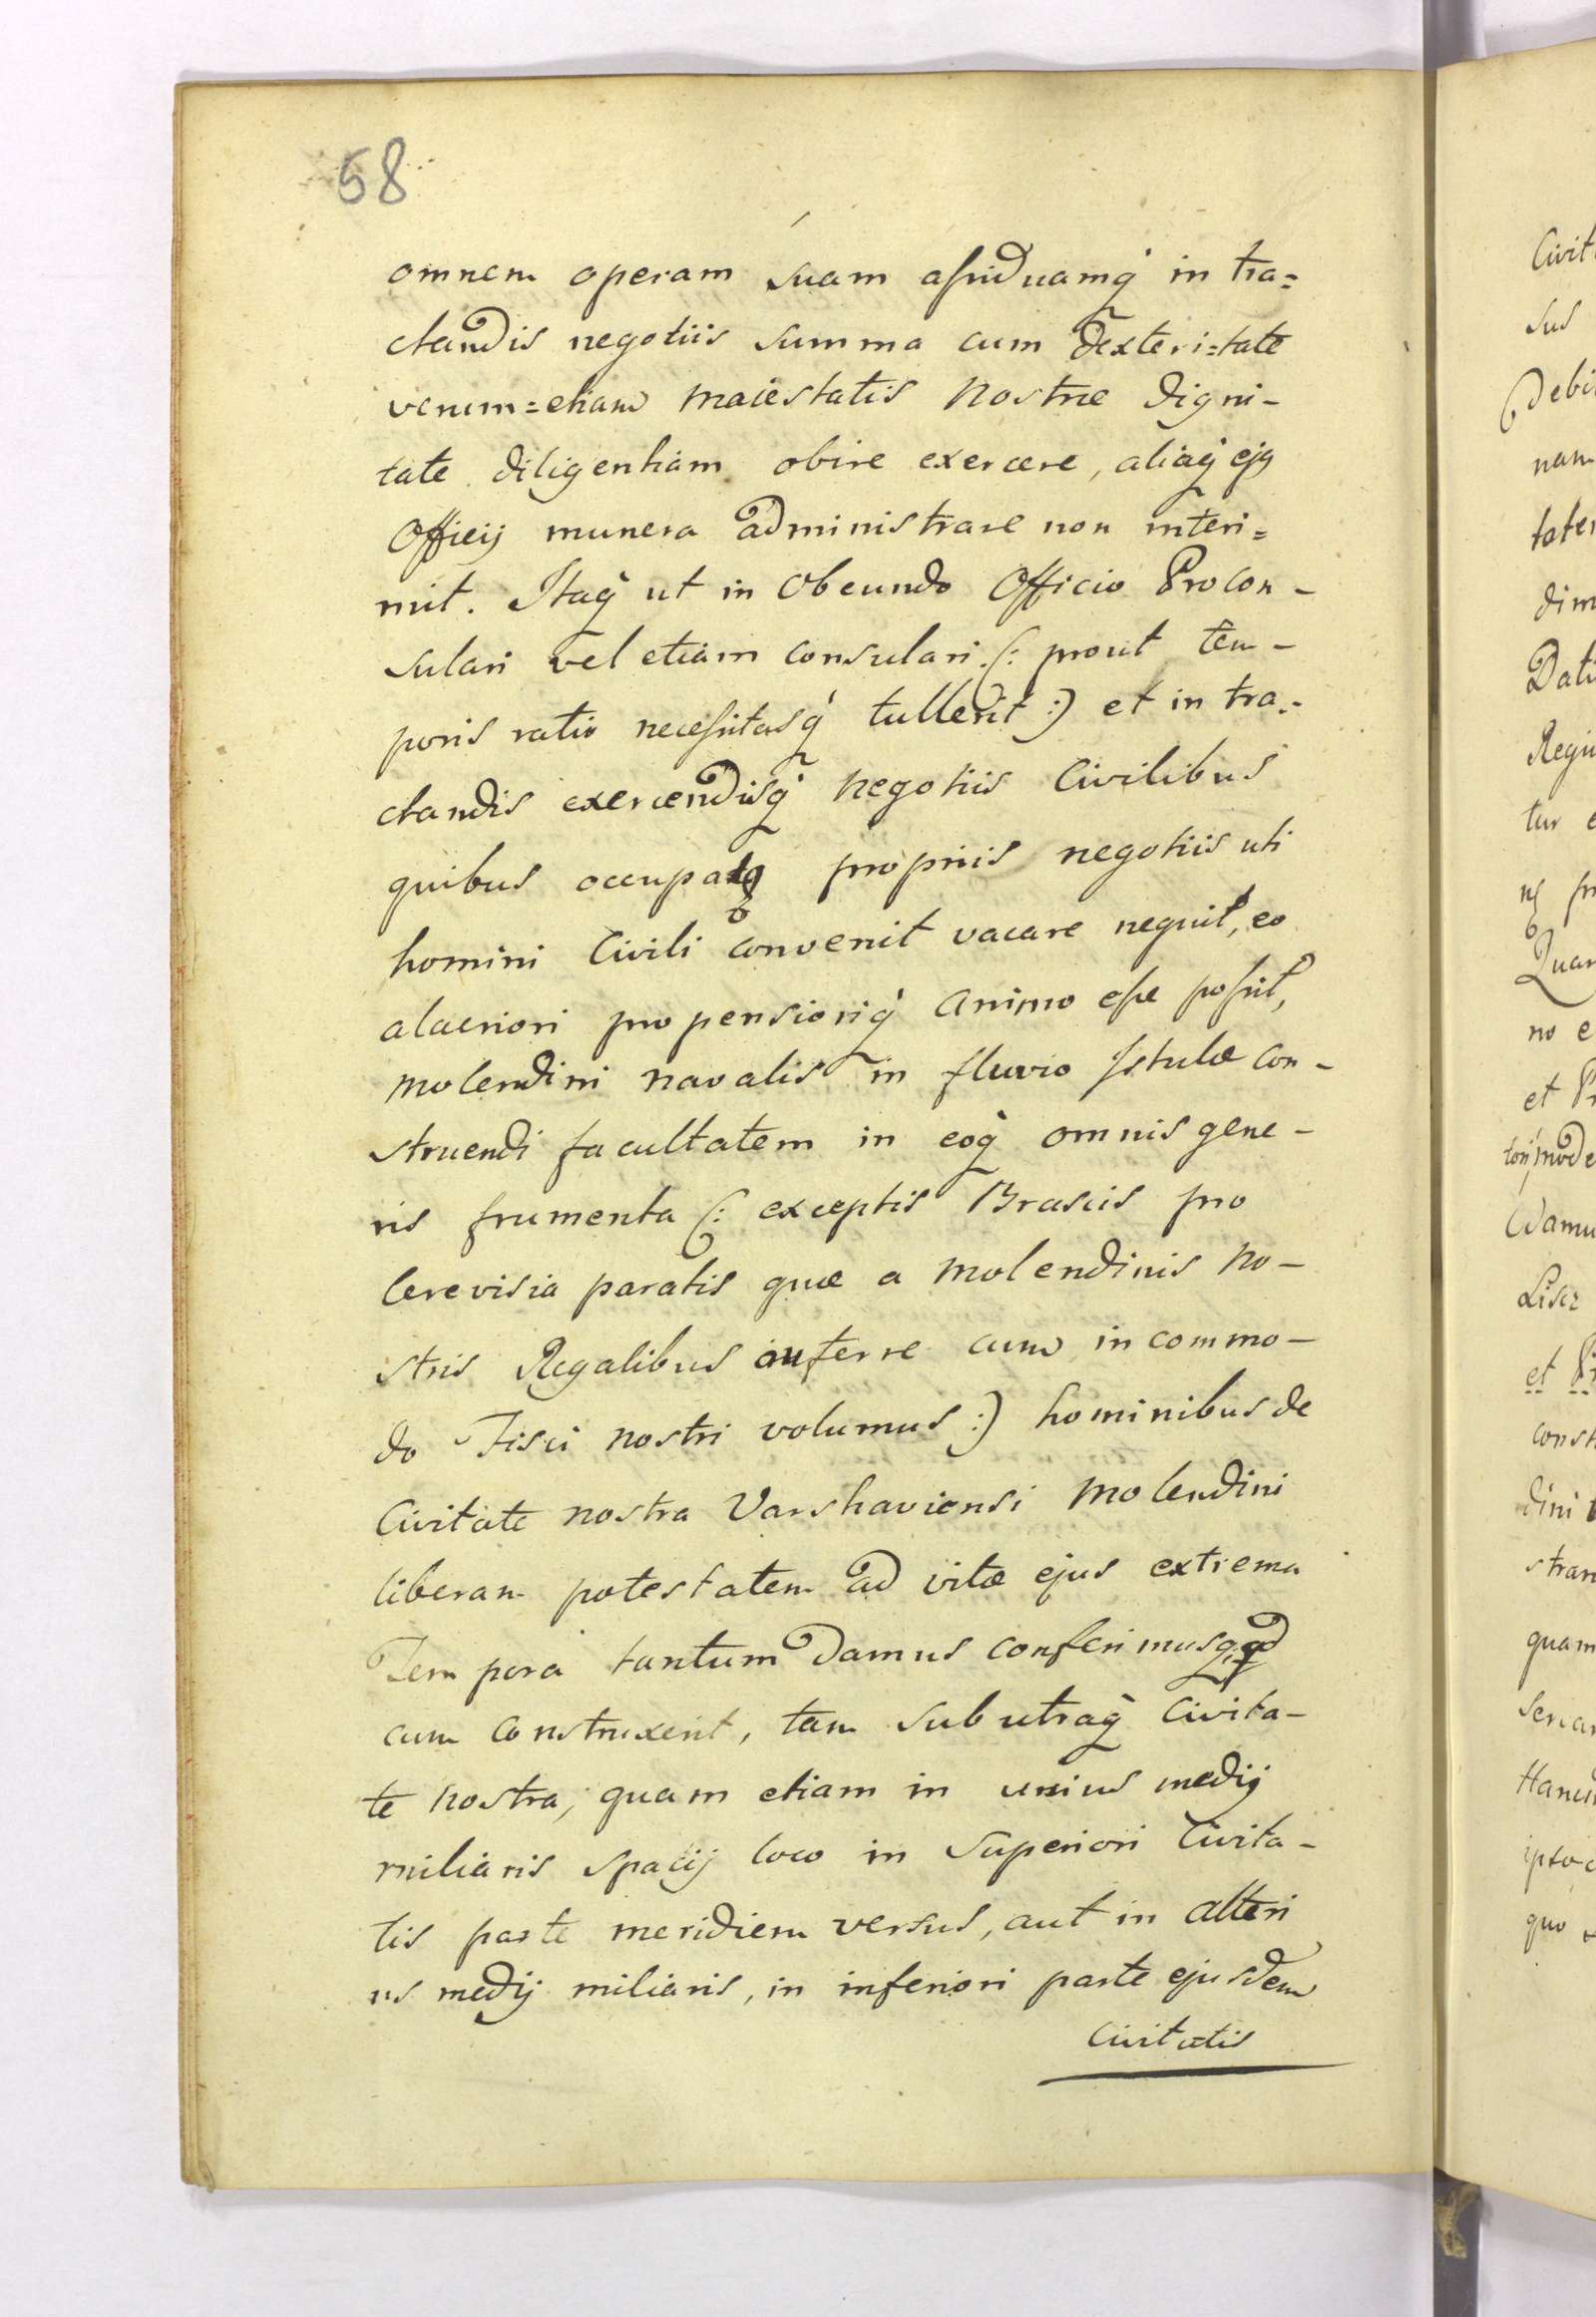 58
omnem operam suam assiduamq̀ in tra=
ctandis negotiis summa cum dexteri=tate
verum=etiam maiestatis nostræ digni-
tate diligentiam obire exercere, aliaq̀ ejq
Officij munera administrare non interi=
mit. Itaq̀ ut in Obeundo Officio Procon-
sulari vel etiam consulari (: prout tem-
poris ratio necessitasq̀ tullerit :) et in tra-
ctandis exercendisq̀ negotiis Civilibus
quibus occupatq propriis negotiis uti
homini Civili convenit vacare nequit, eo
alacriori propensioriq̀ animo esse possit,
molendini navalis in fluvio Istulæ con-
struendi facultatem in eoq̀ omnis gene-
ris frumenta (: exceptis Brasiis pro
Cerevisia paratis quæ a molendinis no-
stris Regalibus auferre cum incommo-
do Fisci nostri volumus :) hominibus de
Civitate nostra Varshaviensi molendini
liberam potestatem ad vitæ ejus extrema
Tempora tantum Damus conferimusq; qd
cum construxerit, tam sub utraq̀ Civita-
te nostra, quam etiam in unius medij
miliaris spacij loco in Superiori Civita-
tis parte meridiem versus, aut in alteri
us medij miliaris, in inferiori parte ejusdem
Civitatis
Civit
sus
Debi
nam
tatem
dim
Datu
Regii
tur e
Quar
no e
et Pr
Damu
Lisez
et Pr
const
dini
stran
quam
servar
ipso
quo